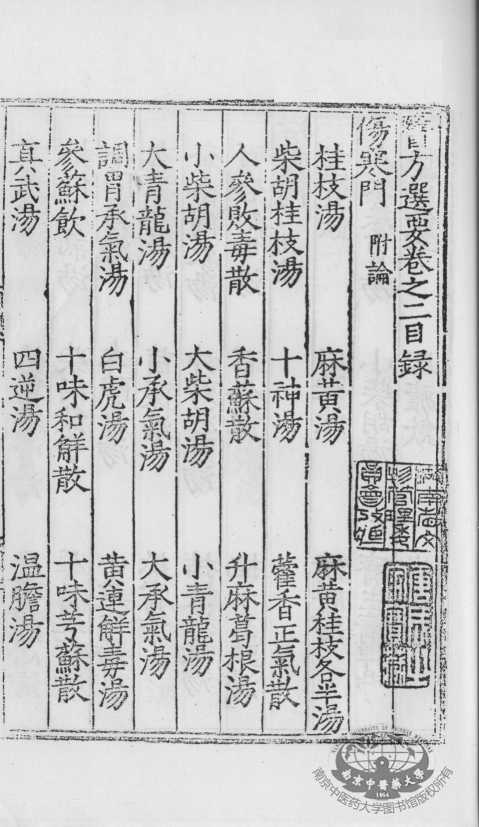 方選要卷之二目録
傷寒門 附論
桂枝湯 麻黄湯 麻黄桂枝各半湯
柴胡桂枝湯 十神湯 藿香正氣散
人參敗毒散 香蘇散 升麻葛根湯
小柴胡湯 大柴胡湯 小青龍湯
大青龍湯 小承氣湯 大承氣湯
調胃承氣湯 白虎湯 黄連解毒湯
參蘇飲 十味和解散 十味芎蘇散
真武湯 四逆湯 温膽湯
南京中醫藥大學
1954
南京中医药大学图书馆版权所有